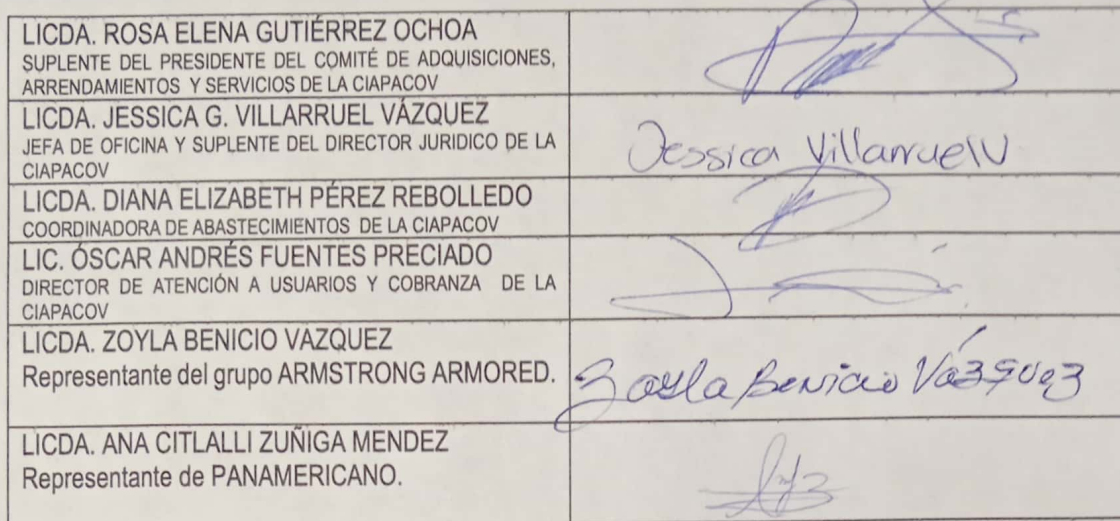 LICDA. ROSA ELENA GUTIÉRREZ OCHOA
SUPLENTE DEL PRESIDENTE DEL COMITÉ DE ADQUISICIONES,
ARRENDAMIENTOS Y SERVICIOS DE LA CIAPACOV
LICDA. JESSICA G. VILLARRUEL VÁZQUEZ
JEFA DE OFICINA Y SUPLENTE DEL DIRECTOR JURIDICO DE LA
CIAPACOV
Jessica Villarruel V
LICDA. DIANA ELIZABETH PÉREZ REBOLLEDO
COORDINADORA DE ABASTECIMIENTOS DE LA CIAPACOV
LIC. ÓSCAR ANDRÉS FUENTES PRECIADO
DIRECTOR DE ATENCIÓN A USUARIOS Y COBRANZA DE LA
CIAPACOV
LICDA. ZOYLA BENICIO VAZQUEZ
Representante del grupo ARMSTRONG ARMORED.
Zoyla Benicio Vázquez
LICDA. ANA CITLALLI ZUÑIGA MENDEZ
Representante de PANAMERICANO.